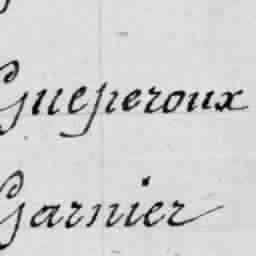 Gueperoux
Garnier